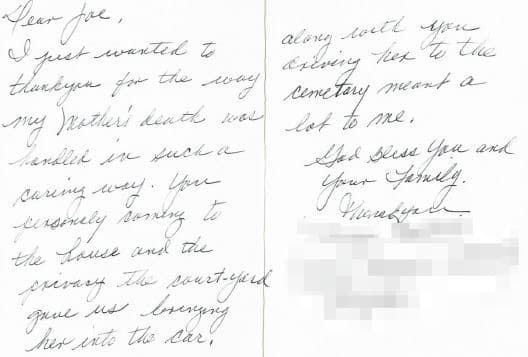 Dear Joe,
I just wanted to
thankyou for the way
my Mother's death was
handled in such a
caring way. You
personely coming to
the house and the
privacy the court-yard
gave us bringing
her into the car,
along with you
driving her to the
cemetary meant a
lot to me.
God Bless You and
Your Family.
Thankyou